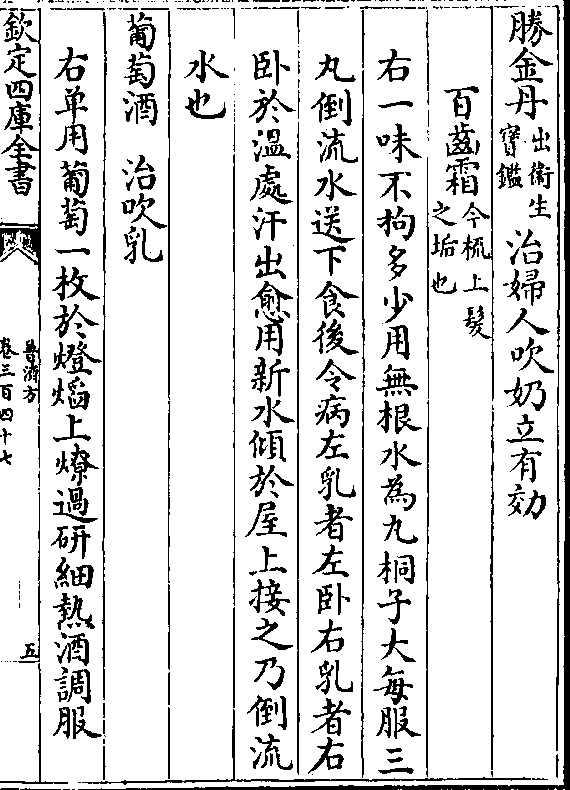 勝金丹出衛生寶鑑治婦人吹奶立有効
百齒霜今梳上髮之垢也
右一味不拘多少用無根水為丸桐子大每服三
丸倒流水送下食後令病左乳者左卧右乳者右
卧於溫處汗出愈用新水傾於屋上接之乃倒流
水也
葡萄酒 治吹乳
右单用葡萄一枚於燈熖上燎過研細熱酒調服
欽定四庫全書
普濟方
卷三百四十七
五